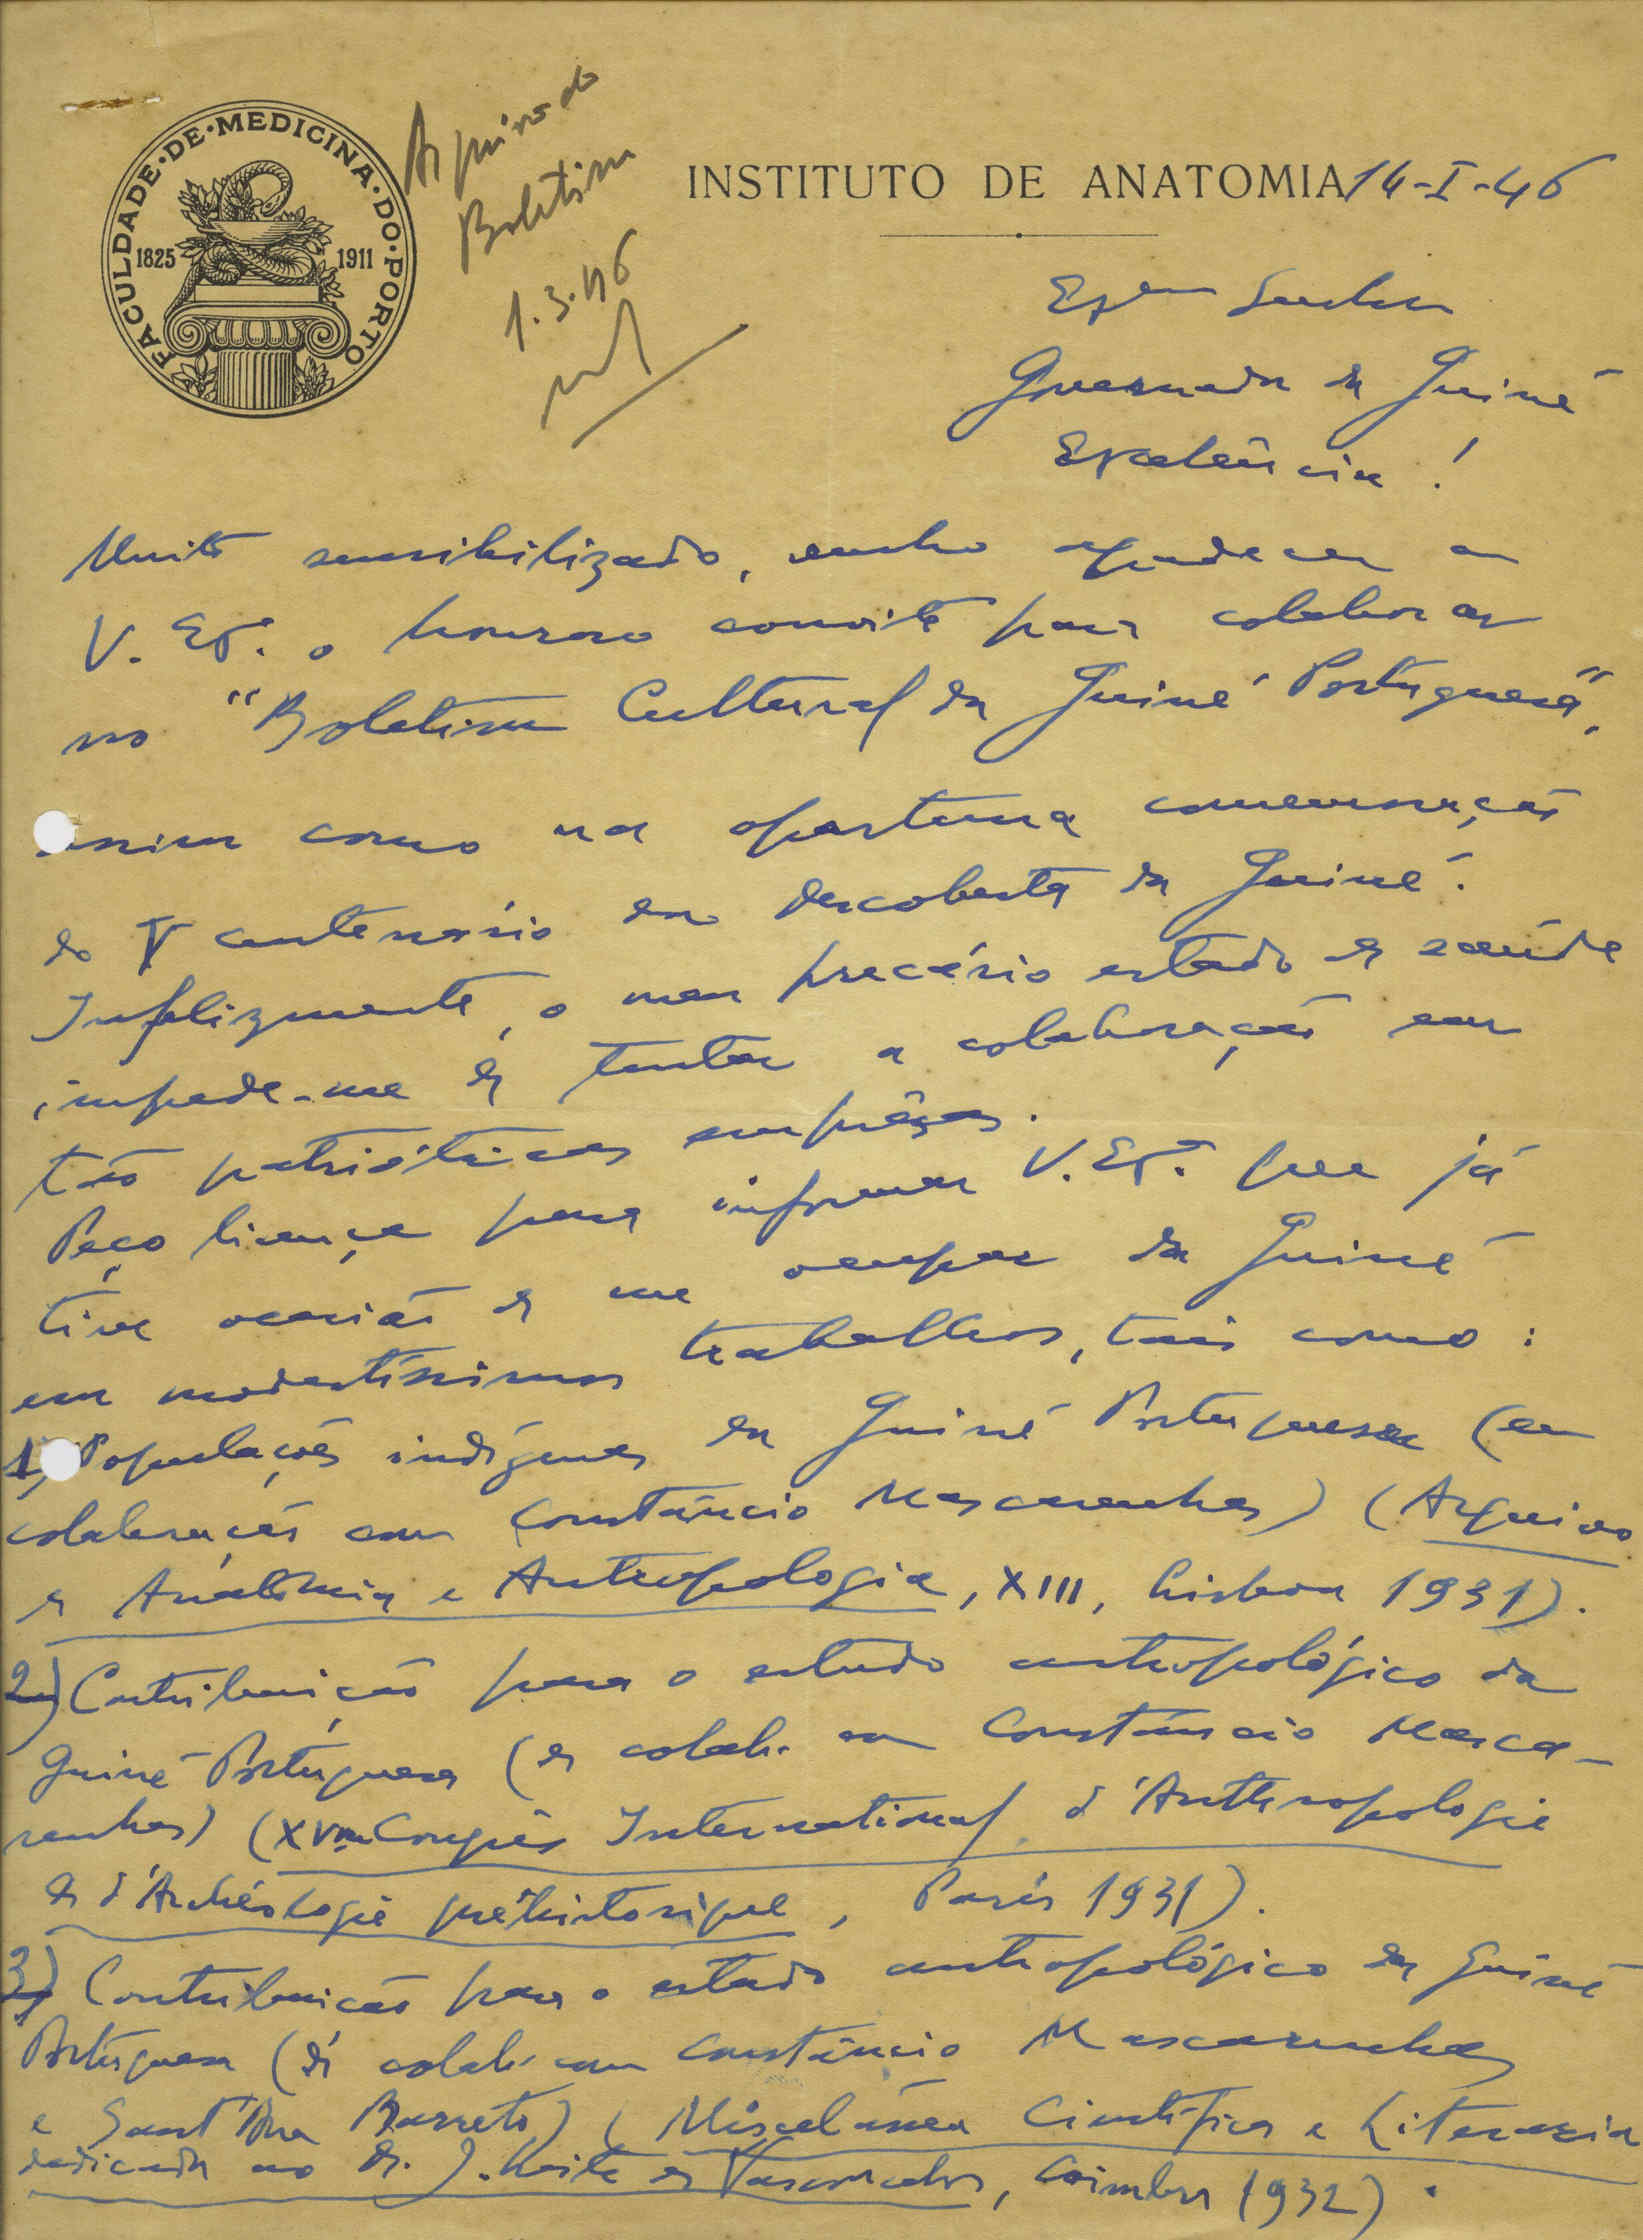 FACULDADE·DE·MEDICINA·DO·PORTO
1825 1911
Arquivo do
Boletim
1.3.46
INSTITUTO DE ANATOMIA 14-I-46
Exmo Senhor
Governador da Guiné
Excelência!
Muito sensibilizado, venho agradecer a
V. Exª. o honroso convite para colaborar
no "Boletim Cultural da Guiné Portuguesa",
assim como na oportuna comemoração
do V centenário da descoberta da Guiné.
Infelizmente, o meu precário estado de saúde
impede-me de tentar a colaboração em
tão patrióticas emprêsas.
Peço licença para informar V. Exª. que já
tive ocasião de me ocupar da Guiné
em modestíssimos trabalhos, tais como:
1) Populações indígenas da Guiné Portuguesa (em
colaboração com Constâncio Mascarenhas) (Arquivo
de Anatomia e Antropologia, XIII, Lisboa 1931).
2) Contribuição para o estudo antropológico da
Guiné Portuguesa (de colab. com Constâncio Masca-
renhas) (XVme Congrès International d'Anthropologie
et d'Archéologie préhistorique, Paris 1931).
3) Contribuição para o estudo antropológico da Guiné
Portuguesa (de colab. com Constâncio Mascarenhas
e Sant'Ana Barreto) (Miscelânea Científica e Literaria
dedicada ao Dr. J. Leite de Vasconcelos, Coimbra 1932).